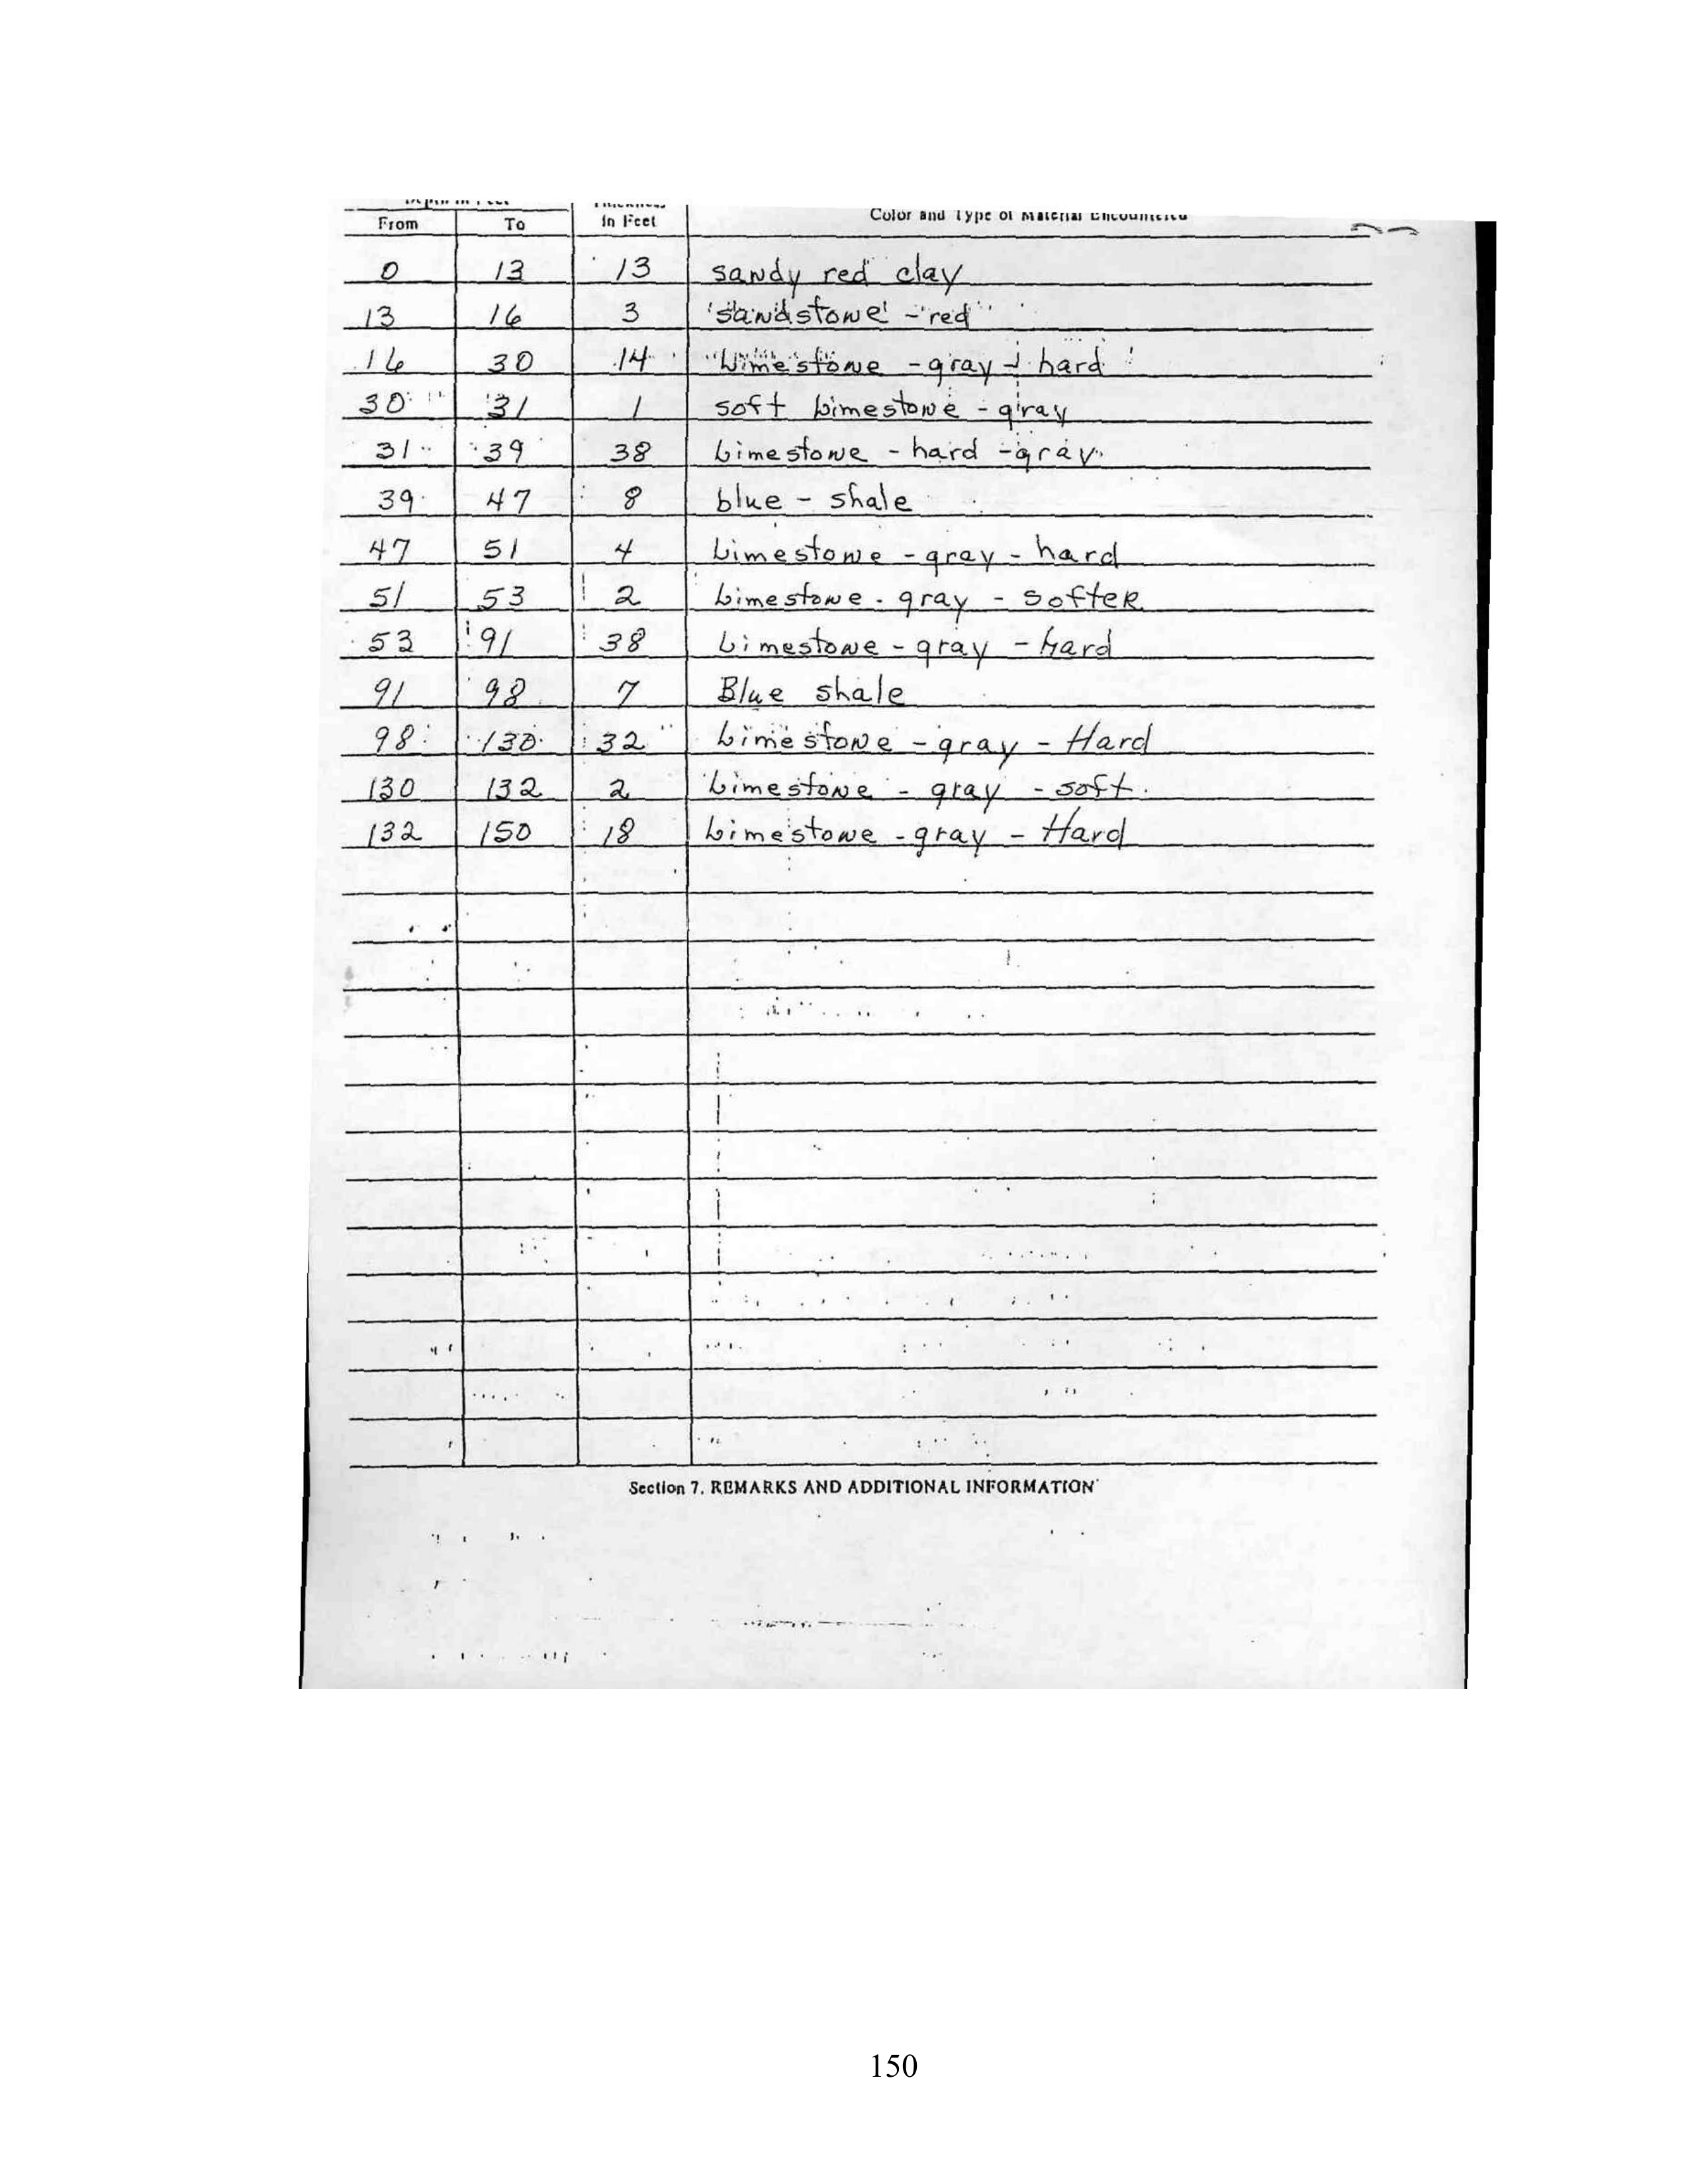 Depth in Feet Thickness
From To in Feet Color and Type of Material Encountered
0 13 13 sandy red clay
13 16 3 sandstone - red
16 30 14 Limestone - gray - hard
30 31 1 soft Limestone - gray
31 39 38 Limestone - hard - gray
39 47 8 blue - shale
47 51 4 Limestone - gray - hard
51 53 2 Limestone - gray - softer
53 91 38 Limestone - gray - hard
91 98 7 Blue shale
98 130 32 Limestone - gray - Hard
130 132 2 Limestone - gray - soft
132 150 18 Limestone - gray - Hard
Section 7. REMARKS AND ADDITIONAL INFORMATION
150